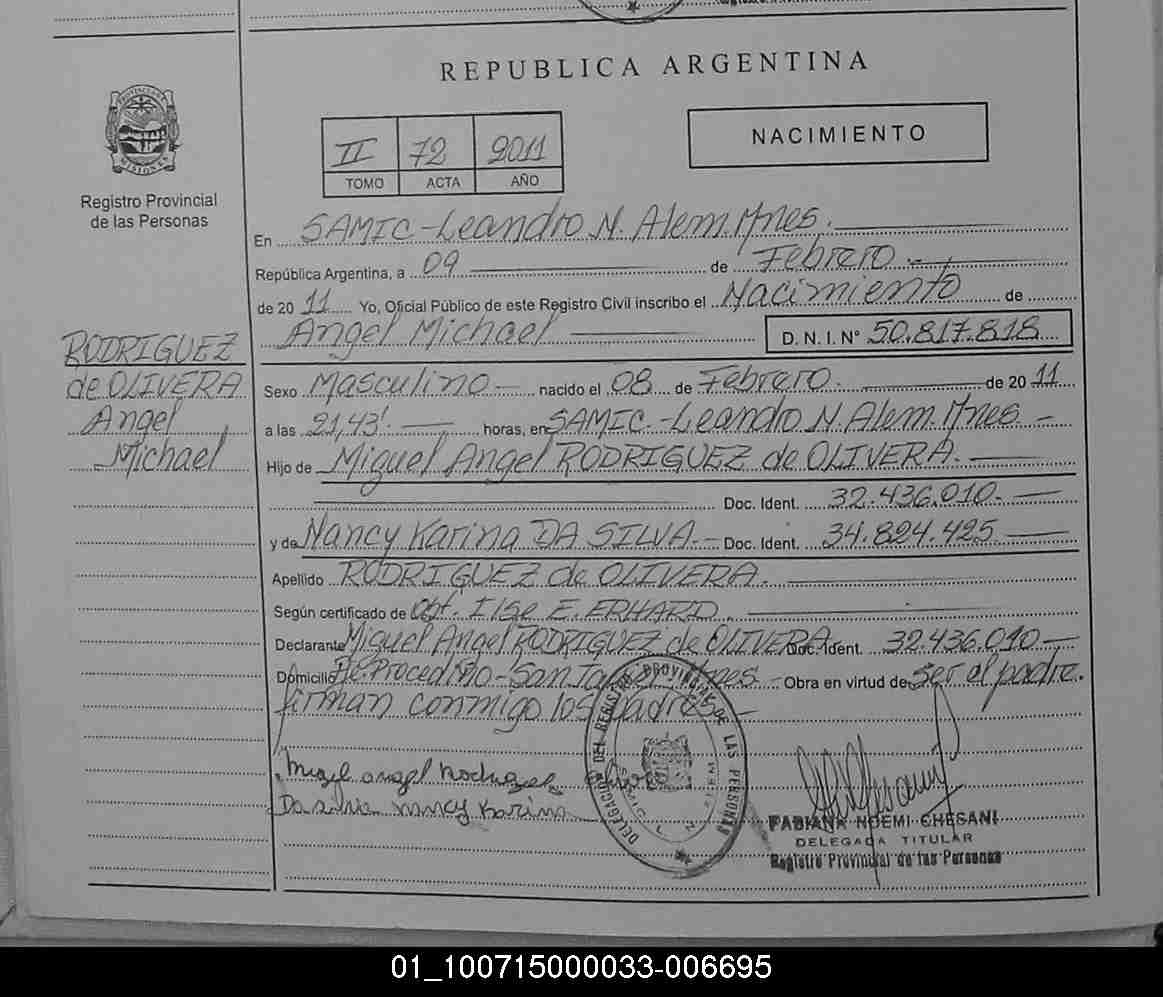 REPUBLICA ARGENTINA
PROVINCIA DE MISIONES
Registro Provincial
de las Personas
II 72 2011
TOMO ACTA AÑO
NACIMIENTO
En SAMIC-Leandro N. Alem. Mnes.
República Argentina, a 09 de Febrero
de 20 11 Yo, Oficial Público de este Registro Civil inscribo el Nacimiento de
Angel Michael D. N. I. N° 50.817.818
RODRIGUEZ
de OLIVERA
Angel
Michael
Sexo Masculino nacido el 08 de Febrero de 20 11
a las 21,43' horas, en SAMIC.-Leandro N. Alem. Mnes.
Hijo de Miguel Angel RODRIGUEZ de OLIVERA.
Doc. Ident. 32.436.010
y de Nancy Karina DA SILVA. Doc. Ident. 34.824.425
Apellido RODRIGUEZ de OLIVERA.
Según certificado de Obt. Ilse E. ERHARD.
Declarante Miguel Angel RODRIGUEZ de OLIVERA Doc. Ident. 32.436.010
Domicilio Mnes Obra en virtud de ser el padre.
firman conmigo los padres
Miguel angel Rodriguez
Da silva nancy Karina
DELEGACION DEL REGISTRO PROVINCIAL DE LAS PERSONAS
L. N. ALEM
FABIANA NOEMI CHESANI
DELEGADA TITULAR
Registro Provincial de las Personas
01_100715000033-006695